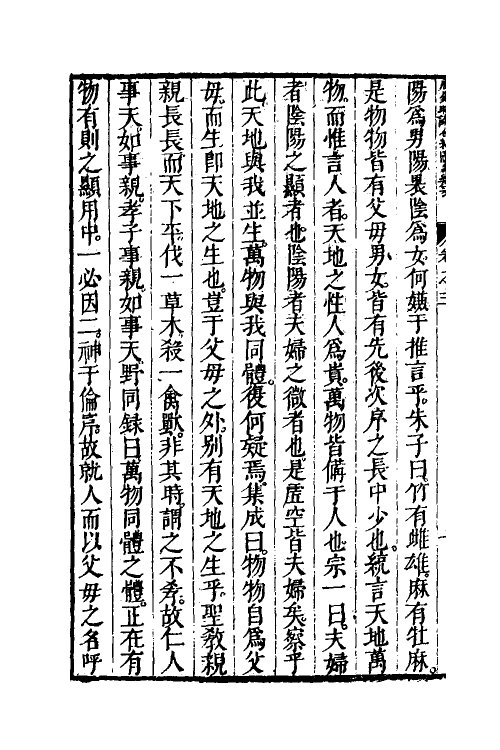 陽爲男陽㐮陰爲女何嫌于推言乎朱子曰竹有雌雄麻有牡麻
是物物皆有父母男女皆有先後次序之長中少也統言天地萬
物而惟言人者天地之性人爲貴萬物皆備于人也宗一曰夫婦
者陰陽之顯者也陰陽者夫婦之微者也是虛空皆夫婦矣察乎
此天地與我並生萬物與我同體復何疑焉集成曰物物自爲父
母而生卽天地之生也豈于父母之外別有天地之生乎聖敎親
親長長而天下平伐一草木殺一禽獸非其時謂之不孝故仁人
事天如事親孝子事親如事天野同錄曰萬物同體之體正在有
物有則之顯用中一必因二神于倫序故就人而以父母之名呼